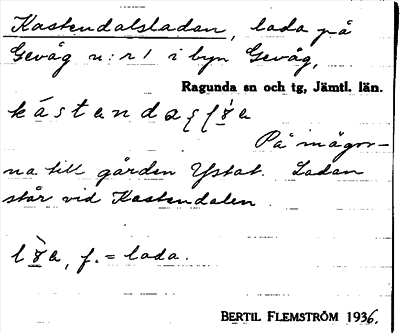 Kastendalsladan, lada på
Gevåg n:r 1 i byn Gevåg,
Ragunda sn och tg, Jämtl. län.
På mågor-
na till gården Ystat. Ladan
står vid Kastendalen.
f. = lada.
BERTIL FLEMSTRÖM 1936.